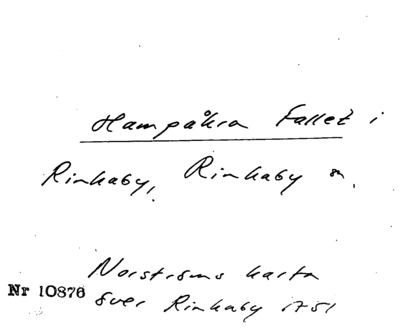 Hampåkra Fallet i
Rinkaby, Rinkaby sn.
Norströms karta
Nr 10876 över Rinkaby 1751